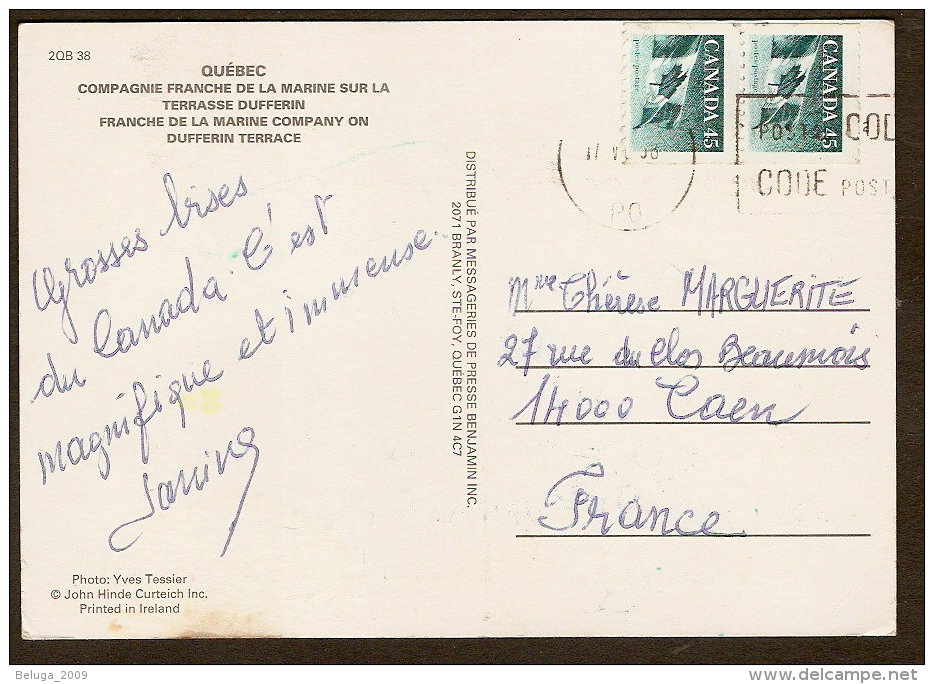 2QB 38
QUÉBEC
COMPAGNIE FRANCHE DE LA MARINE SUR LA
TERRASSE DUFFERIN
FRANCHE DE LA MARINE COMPANY ON
DUFFERIN TERRACE
Grosses bises
du Canada. C'est
magnifique et immense.
Janine
Photo: Yves Tessier
© John Hinde Curteich Inc.
Printed in Ireland
DISTRIBUÉ PAR MESSAGERIES DE PRESSE BENJAMIN INC.
2071 BRANLY, STE-FOY, QUÉBEC G1N 4C7
CANADA 45
postes/postage
CANADA 45
postes/postage
17
PO
POSTAL COD
CODE POST
Mme Thérèse MARGUERITE
27 rue du Clos Beaumois
14000 Caen
France
Beluga_2009
delcampe.net